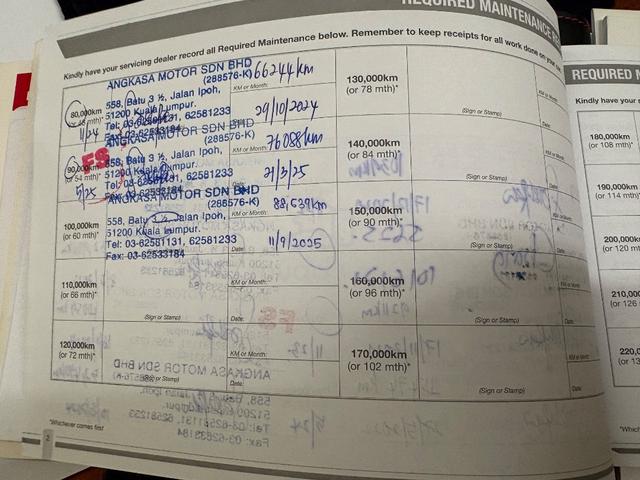 REQUIRED MAINTENANCE
Kindly have your servicing dealer record all Required Maintenance below. Remember to keep receipts for all work done on your
80,000km
11/24
ANGKASA MOTOR SDN BHD
(288576-K)
558, Batu 3 ½, Jalan Ipoh,
51200 Kuala Lumpur.
Tel: 03-62581131, 62581233
Fax: 03-62533184
66244km
KM or Month:
29/10/2024
90,000km
(or 54 mth)*
5/25
FS
ANGKASA MOTOR SDN BHD
(288576-K)
558, Batu 3 ½, Jalan Ipoh,
51200 Kuala Lumpur.
Tel: 03-62581131, 62581233
Fax: 03-62533184
76088km
21/3/25
100,000km
(or 60 mth)*
ANGKASA MOTOR SDN BHD
(288576-K)
558, Batu 3 ½, Jalan Ipoh,
51200 Kuala Lumpur.
Tel: 03-62581131, 62581233
Fax: 03-62533184
88,639km
11/9/2025
Date:
110,000km
(or 66 mth)*
(Sign or Stamp)
KM or Month:
Date:
120,000km
(or 72 mth)*
(Sign or Stamp)
KM or Month:
Date:
*Whichever comes first
2
130,000km
(or 78 mth)*
(Sign or Stamp)
KM or Month:
Date:
140,000km
(or 84 mth)*
(Sign or Stamp)
KM or Month:
Date:
150,000km
(or 90 mth)*
(Sign or Stamp)
KM or Month:
Date:
160,000km
(or 96 mth)*
(Sign or Stamp)
KM or Month:
Date:
170,000km
(or 102 mth)*
(Sign or Stamp)
KM or Month:
Date:
REQUIRED M
Kindly have your s
180,000km
(or 108 mth)*
190,000km
(or 114 mth)*
200,000km
(or 120 mth)*
210,000
(or 126
220,0
(or 13
*Which